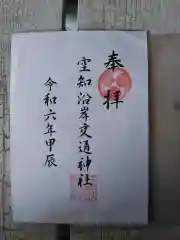 奉拝
空知沿岸交通神社
令和六年甲辰